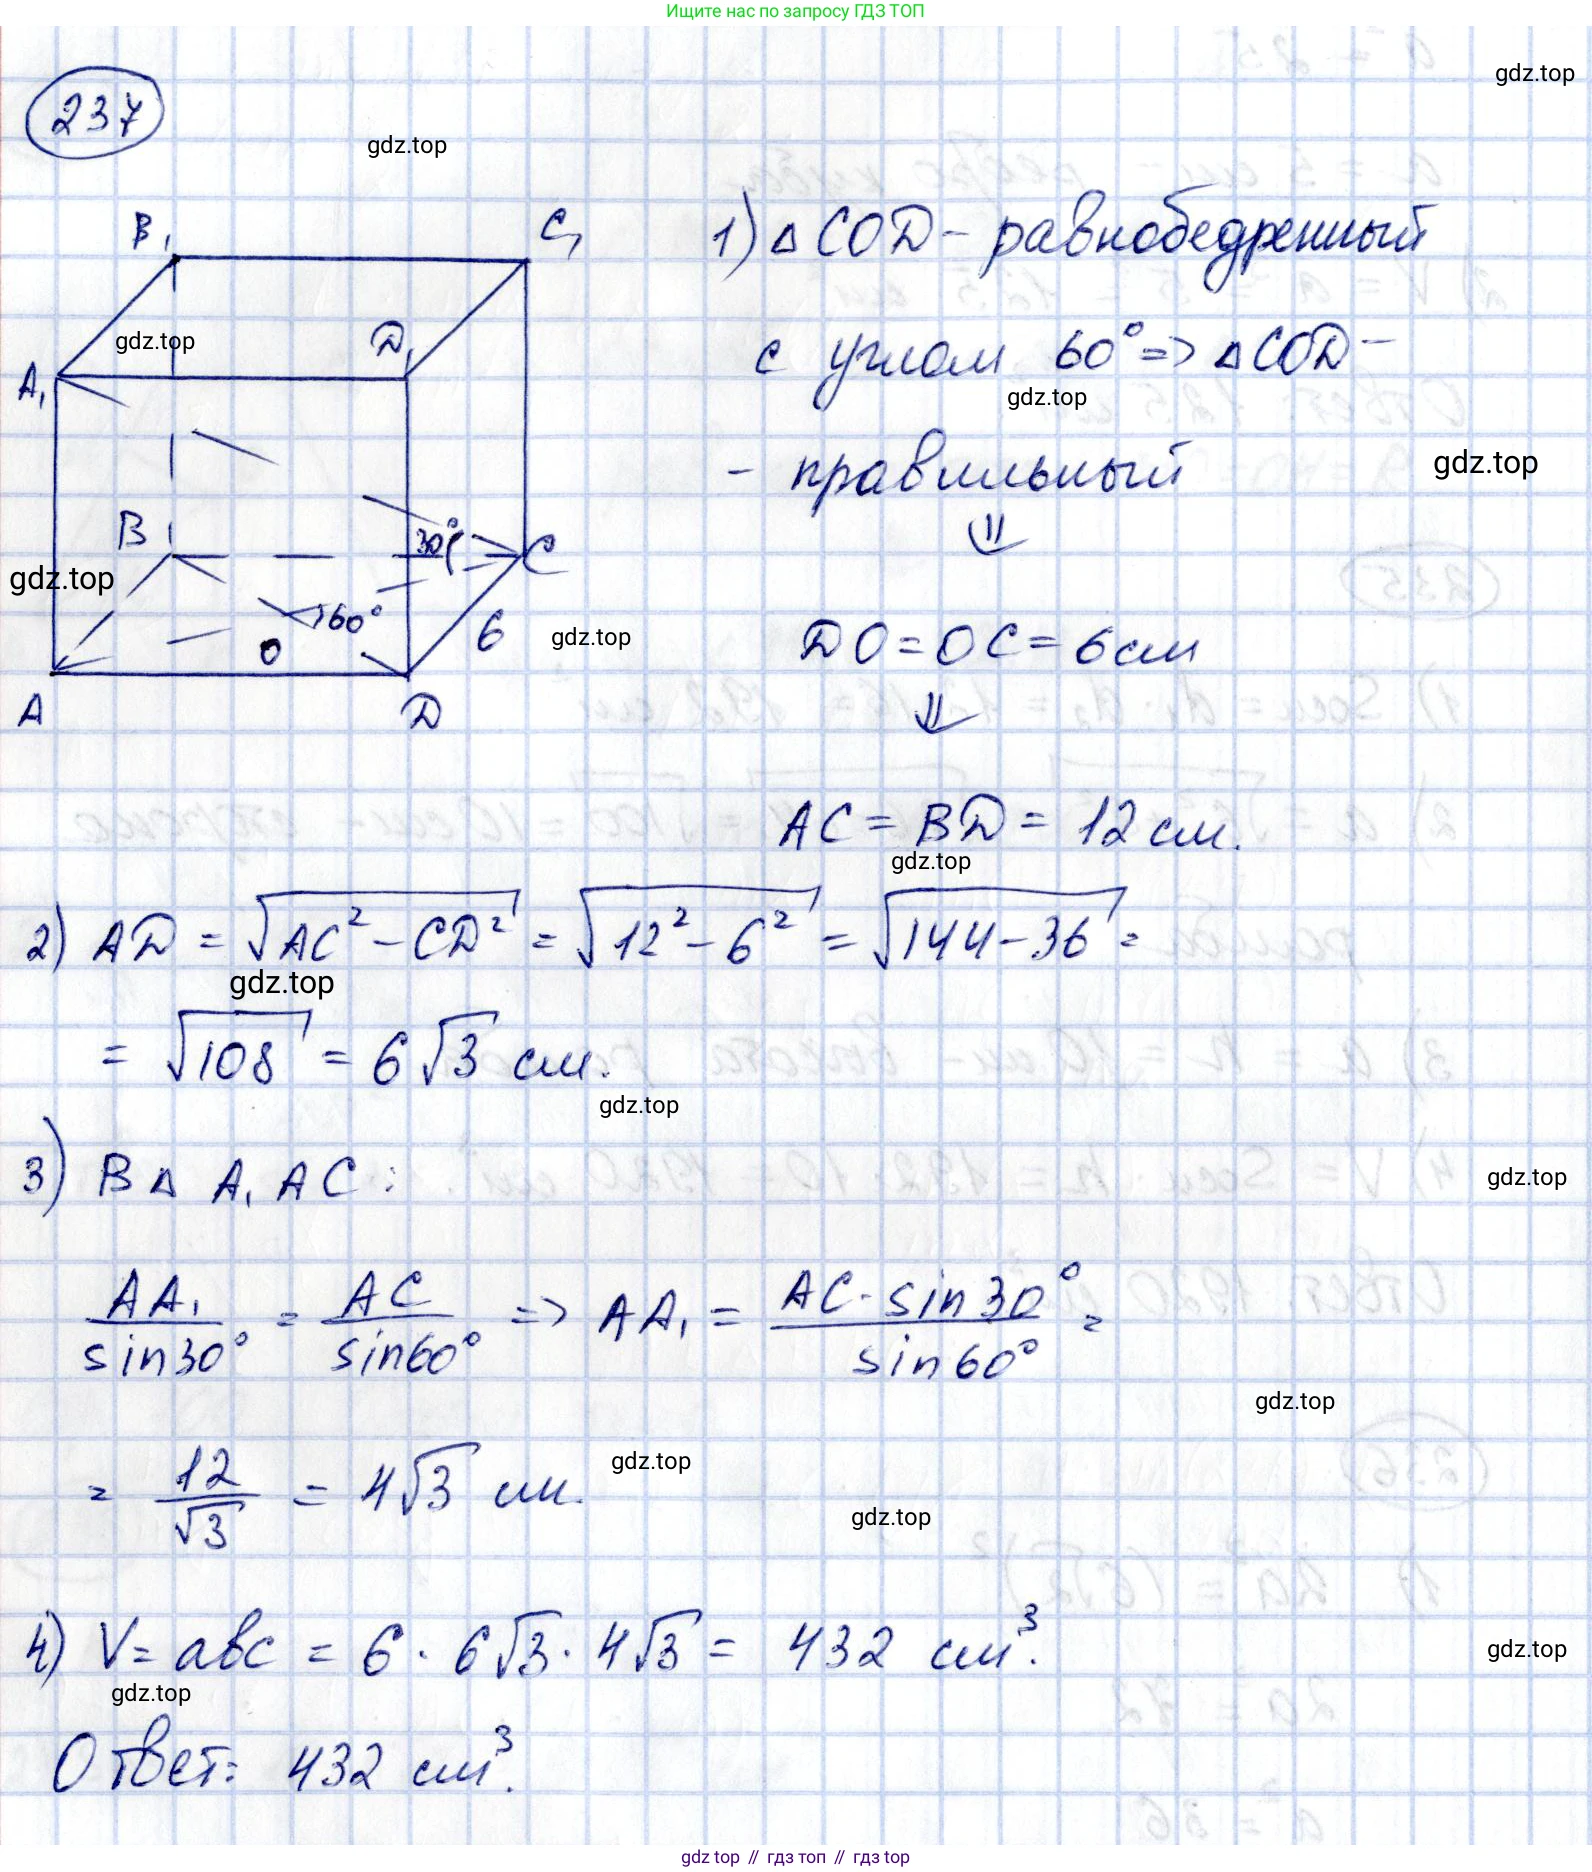 Ищите нас по запросу ГДЗ ТОП
gdz.top
237
gdz.top
B₁ C₁
1) △ COD - равнобедренный
gdz.top
D₁
с углом 60° => △ COD -
A₁
gdz.top
- правильный
gdz.top
⇓
B 30° C
gdz.top
60° 6 gdz.top
O
DO = OC = 6 см
⇓
A D
AC = BD = 12 см.
gdz.top
2) AD = √AC² - CD² = √12² - 6² = √144 - 36 =
gdz.top
= √108 = 6√3 см.
gdz.top
3) В △ A₁AC:
gdz.top
AA₁/sin30° = AC/sin60° => AA₁ = AC · sin30°/sin60° =
gdz.top
= 12/√3 = 4√3 см.
gdz.top
gdz.top
4) V = abc = 6 · 6√3 · 4√3 = 432 см³.
gdz.top
gdz.top
Ответ: 432 см³.
gdz.top // гдз топ // гдз top